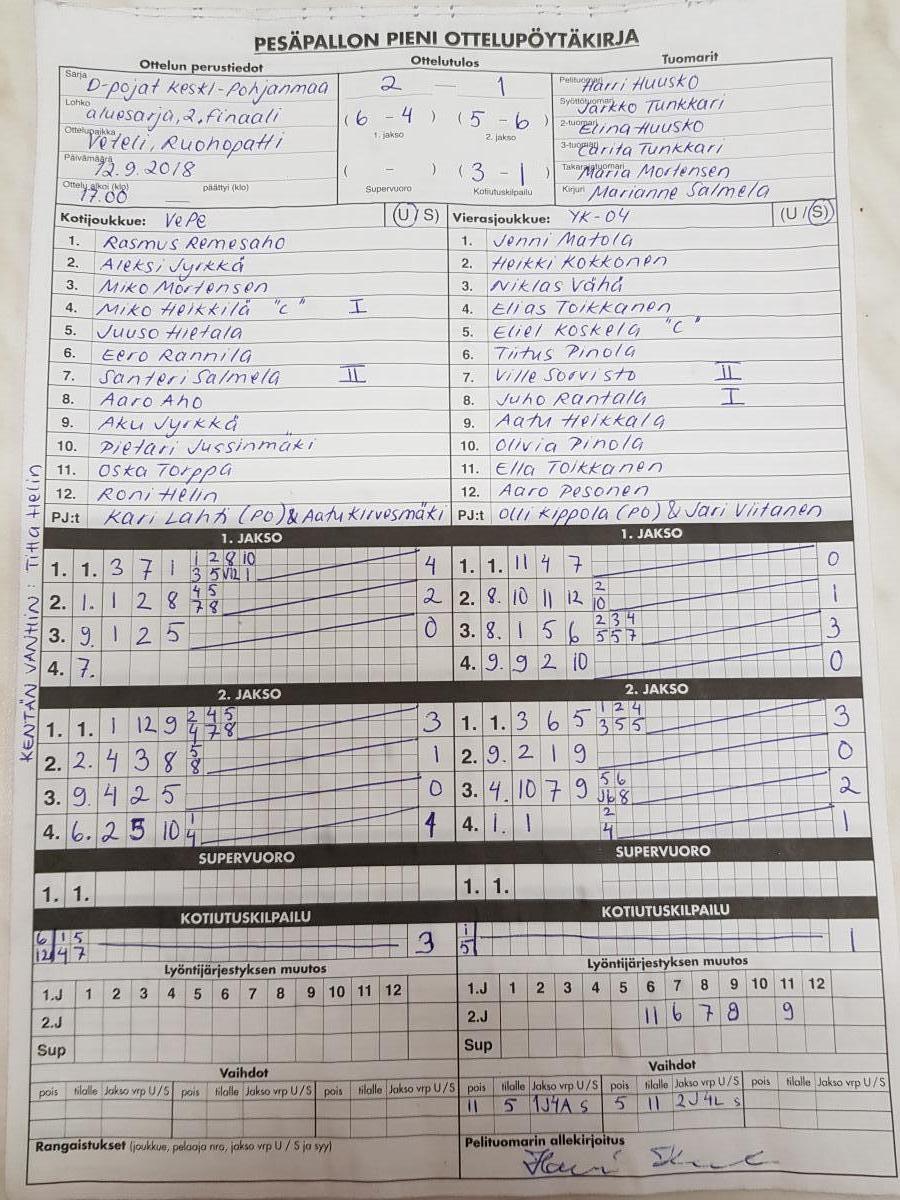 PESÄPALLON PIENI OTTELUPÖYTÄKIRJA
Ottelun perustiedot
Sarja D-pojat Keski-Pohjanmaa
Lohko aluesarja, 2. finaali
Ottelupaikka Veteli, Ruohopatti
Päivämäärä 12.9.2018
Ottelu alkoi (klo) 17.00 päättyi (klo)
Ottelutulos
2 — 1
(6 - 4) (5 - 6)
1. jakso 2. jakso
( - ) (3 - 1)
Supervuoro Kotiutuskilpailu
Tuomarit
Pelituomari Harri Huusko
Syöttötuomari Jarkko Tunkkari
2-tuomari Elina Huusko
3-tuomari Carita Tunkkari
Takarajatuomari Maria Mortensen
Kirjuri Marianne Salmela
Kotijoukkue: VePe (U/S)
1. Rasmus Remesaho
2. Aleksi Jyrkkä
3. Miko Mortensen
4. Miko Heikkilä "C" I
5. Juuso Hietala
6. Eero Rannila
7. Santeri Salmela II
8. Aaro Aho
9. Aku Jyrkkä
10. Pietari Jussinmäki
11. Oska Torppa
12. Roni Helin
PJ:t Kari Lahti (PO) & Aatu Kirvesmäki
Vierasjoukkue: YK-04 (U/S)
1. Jenni Matola
2. Heikki Kokkonen
3. Niklas Vähä
4. Elias Toikkanen
5. Eliel Koskela "C"
6. Tiitus Pinola
7. Ville Sorvisto II
8. Juho Rantala I
9. Aatu Heikkala
10. Olivia Pinola
11. Ella Toikkanen
12. Aaro Pesonen
PJ:t Olli Kippola (PO) & Jari Viitanen
KENTÄN VANHIN: Tiita Helin
1. JAKSO
1. 1. 3 7 1 1 2 8 10 4
3 5 VII2 1
2. 1. 1 2 8 4 5 2
7 8
3. 9. 1 2 5 0
4. 7.
1. JAKSO
1. 1. 11 4 7 0
2. 8. 10 11 12 2 1
10
3. 8. 1 5 6 2 3 4 3
5 5 7
4. 9. 9 2 10 0
2. JAKSO
1. 1. 1 12 9 2 4 5 3
4 7 8
2. 2. 4 3 8 5 1
8
3. 9. 4 2 5 0
4. 6. 2 5 10 1 1
4
2. JAKSO
1. 1. 3 6 5 1 2 4 3
3 5 5
2. 9. 2 1 9 0
3. 4. 10 7 9 5 6 2
J6 8
4. 1. 1 2 1
4
SUPERVUORO
1. 1.
SUPERVUORO
1. 1.
KOTIUTUSKILPAILU
6 1 5 3
12 4 7
KOTIUTUSKILPAILU
1 1
5
Lyöntijärjestyksen muutos
1.J 1 2 3 4 5 6 7 8 9 10 11 12
2.J
Sup
Lyöntijärjestyksen muutos
1.J 1 2 3 4 5 6 7 8 9 10 11 12
2.J 11 6 7 8 9
Sup
Vaihdot
pois tilalle Jakso vrp U/S pois tilalle Jakso vrp U/S pois tilalle Jakso vrp U/S
Vaihdot
pois tilalle Jakso vrp U/S pois tilalle Jakso vrp U/S pois tilalle Jakso vrp U/S
11 5 1J4A S 5 11 2J4L S
Rangaistukset (joukkue, pelaaja nro, jakso vrp U / S ja syy)
Pelituomarin allekirjoitus